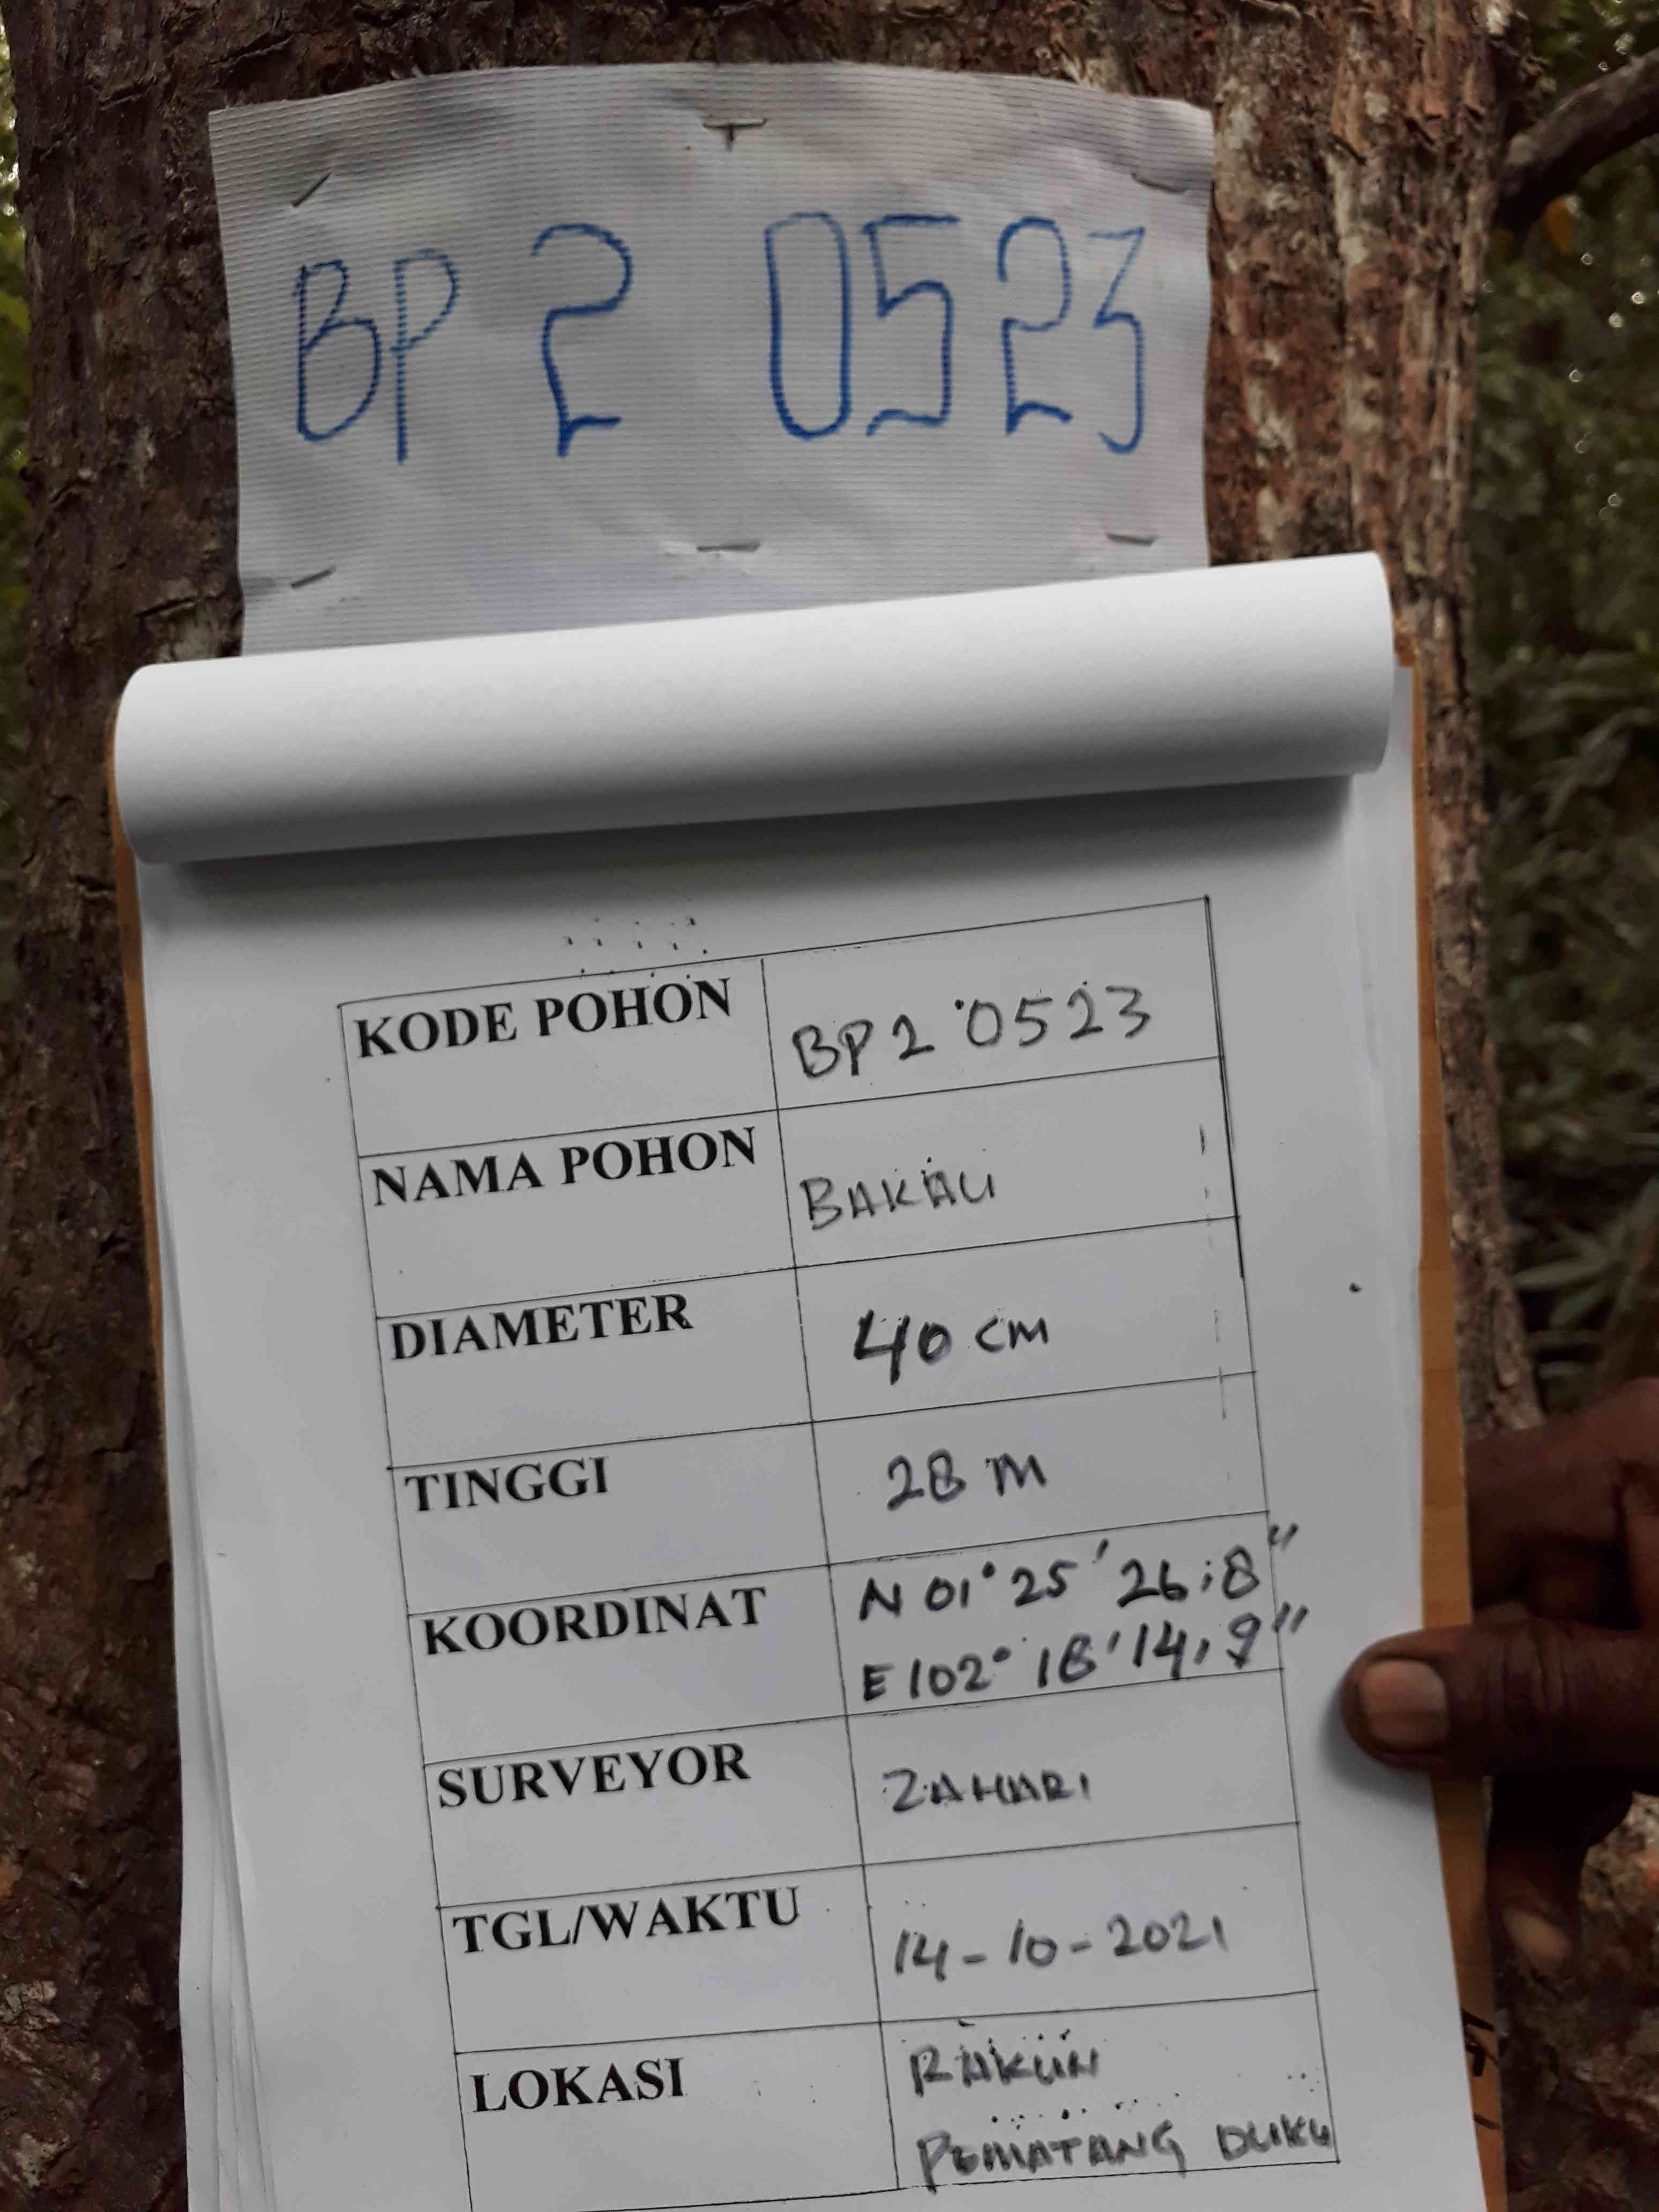 BP 2 0523
KODE POHON BP2 0523
NAMA POHON BAKAU
DIAMETER 40 CM
TINGGI 28 M
KOORDINAT N 01° 25' 26,8"
E 102° 18' 14,9"
SURVEYOR ZAHARI
TGL/WAKTU 14-10-2021
LOKASI RAKUN
PEMATANG DUKU